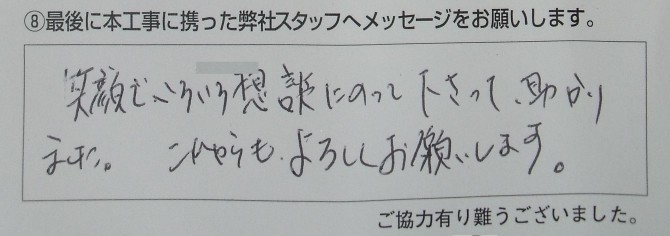 ⑧最後に本工事に携った弊社スタッフへメッセージをお願いします。
笑顔でいろいろ想談にのって下さって、助かり
ました。これからも、よろしくお願いします。
ご協力有り難うございました。